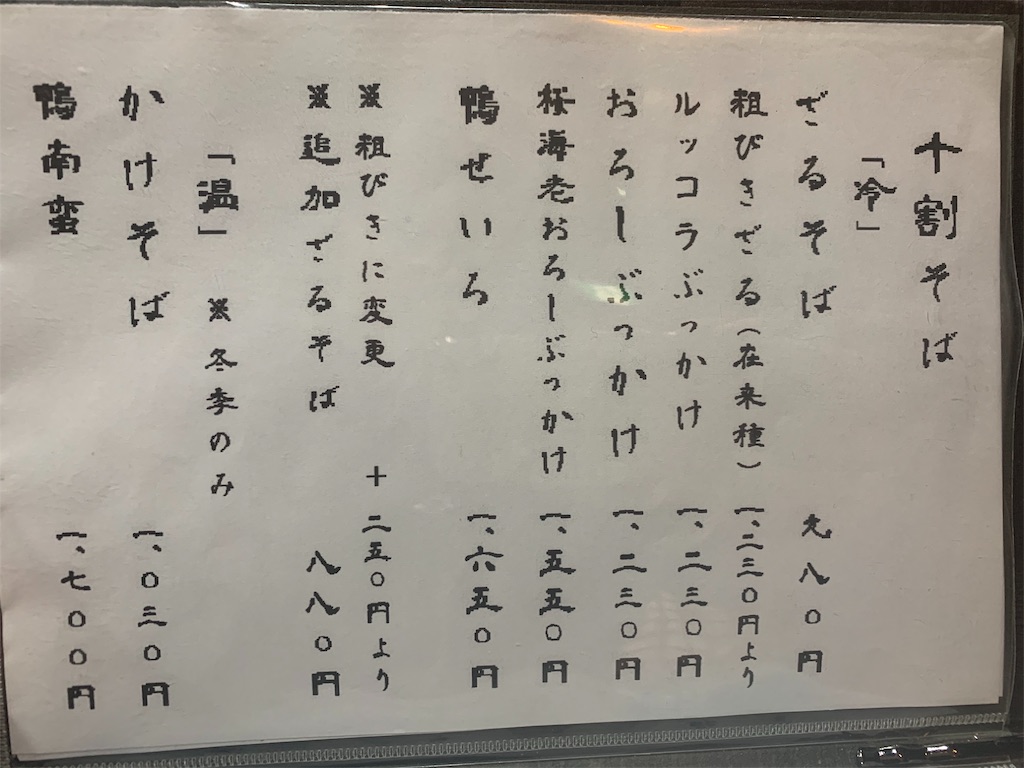 十割そば
「冷」
ざるそば 九八〇円
粗びきざる（在来種） 一、二三〇円より
ルッコラぶっかけ 一、二三〇円
おろしぶっかけ 一、二三〇円
桜海老おろしぶっかけ 一、五五〇円
鴨せいろ 一、六五〇円
※粗びきに変更 ＋二五〇円より
※追加ざるそば 八八〇円
「温」 ※冬季のみ
かけそば 一、〇三〇円
鴨南蛮 一、七〇〇円